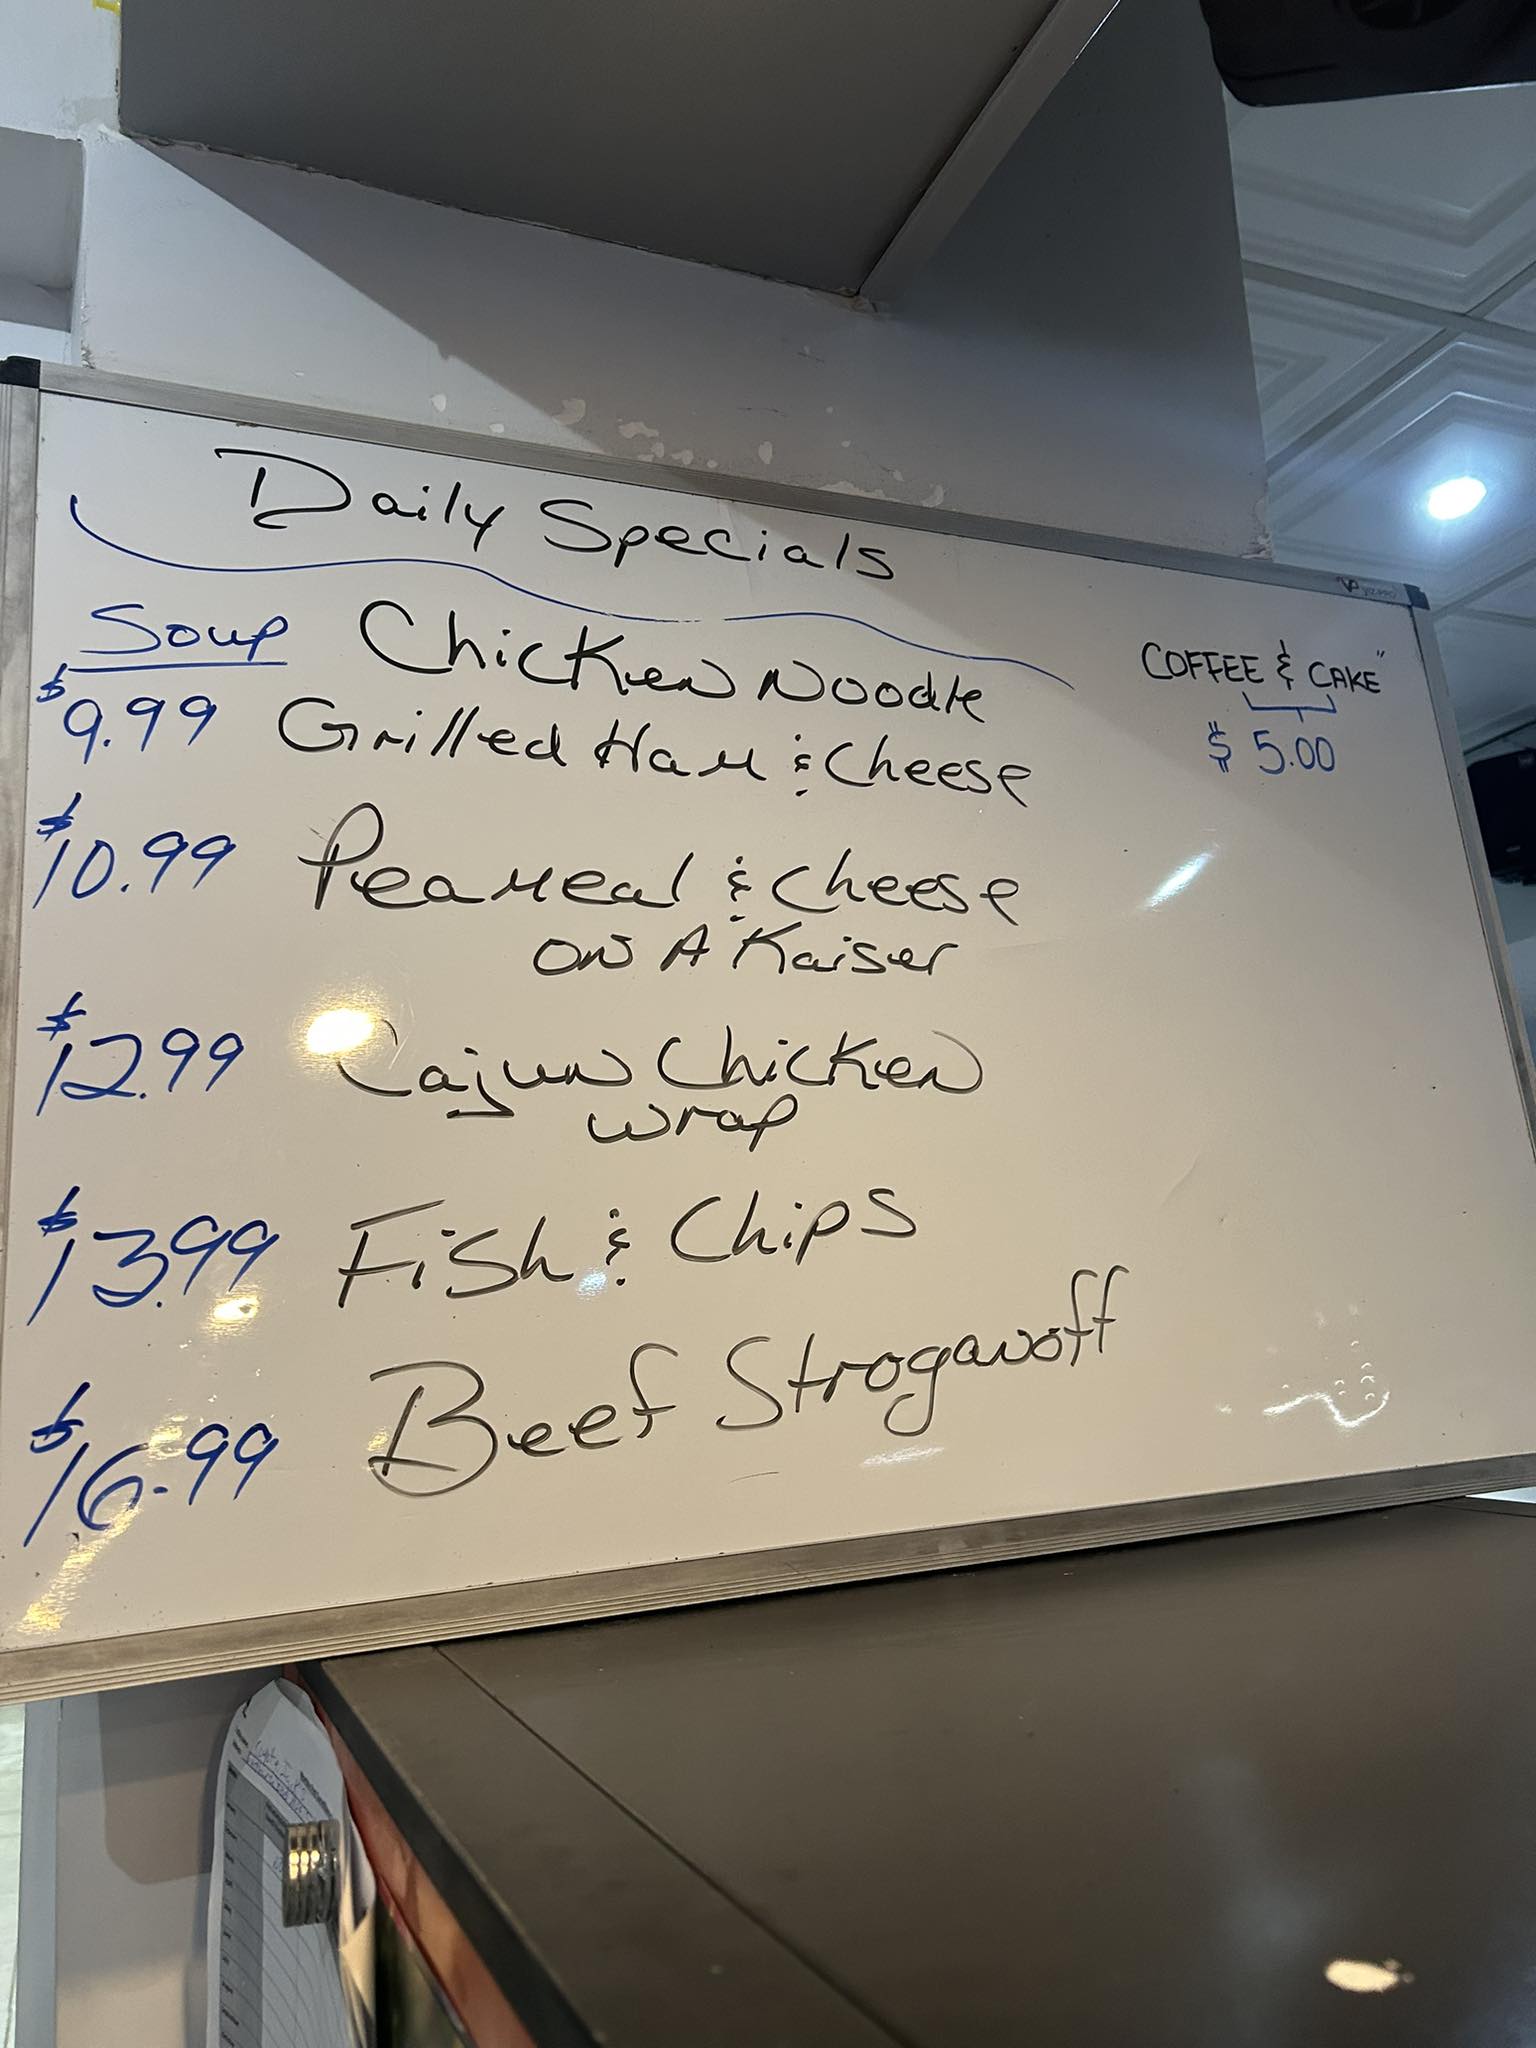 Daily Specials
Soup Chicken Noodle
$9.99 Grilled Ham & Cheese
$10.99 Peameal & Cheese
on A Kaiser
$12.99 Cajun Chicken
wrap
$13.99 Fish & Chips
$16.99 Beef Stroganoff
COFFEE & CAKE"
$ 5.00